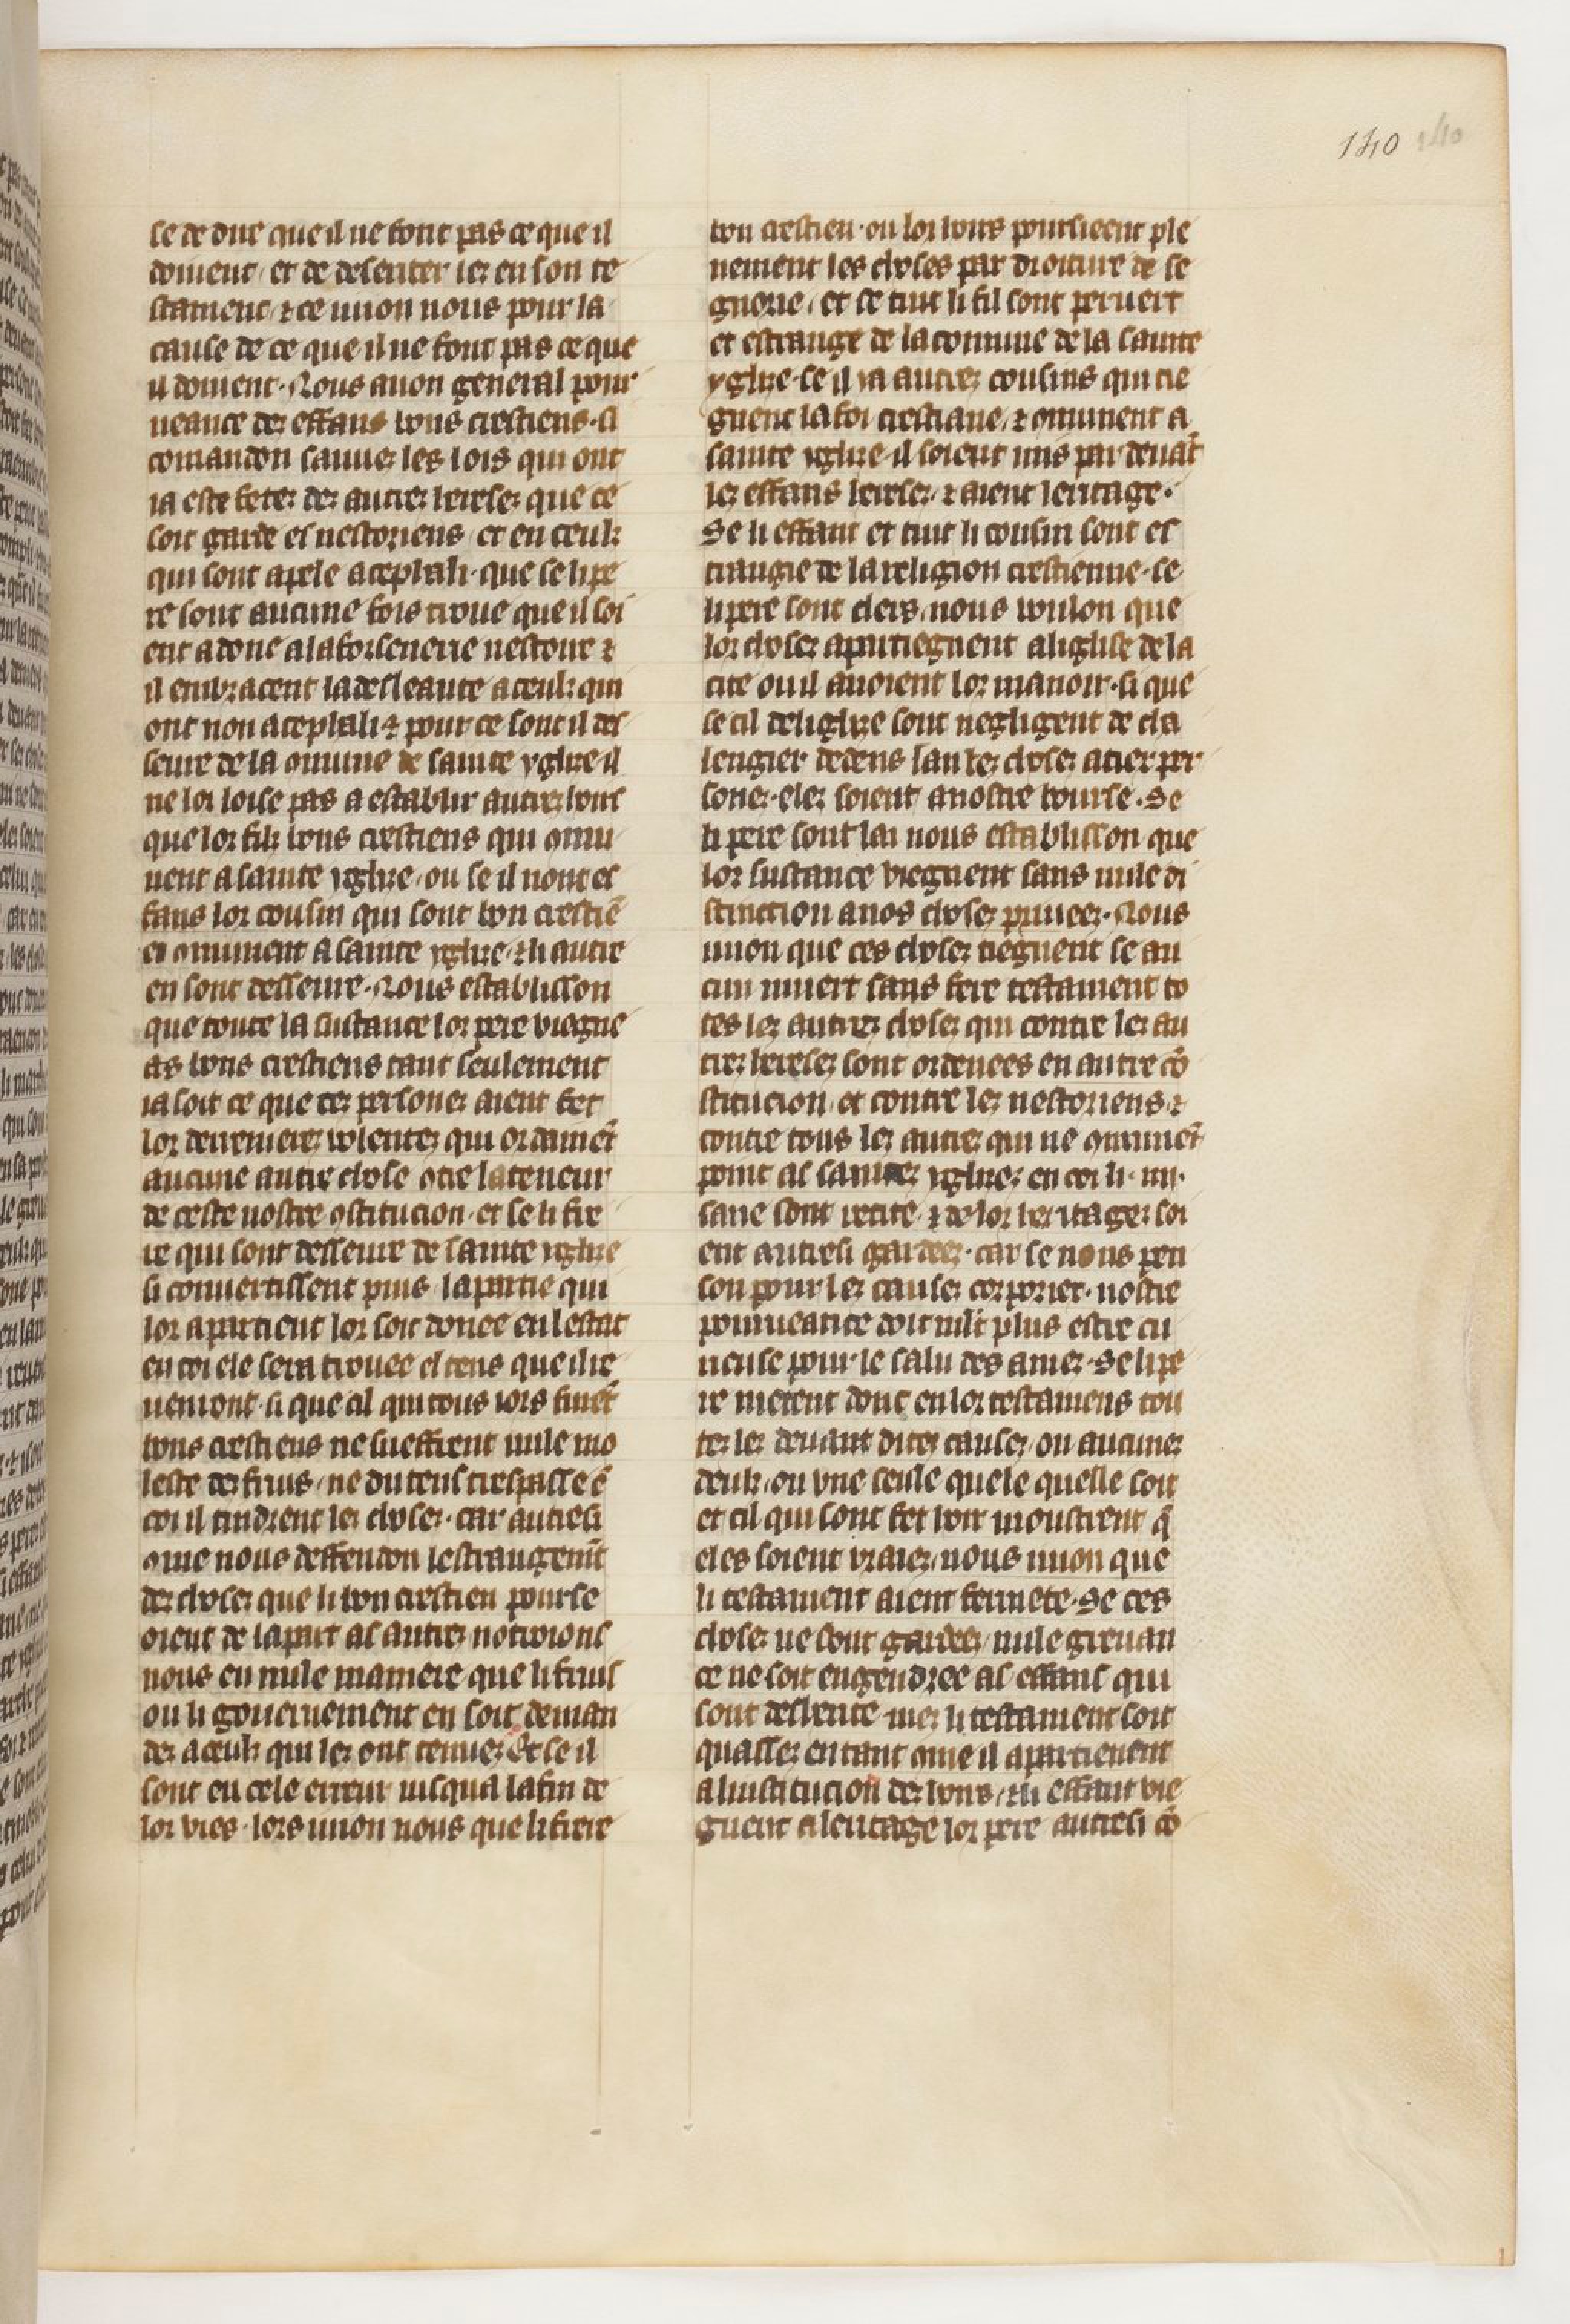 140 140
se de duc que il ne font pas ce que il
doiuent et de deseriter les en son te
stament ⁊ ce uuon nous pour la
cause de ce que il ne font pas ce que
il doiuent. Nous auon general pour
ueance des effans bons crestiens. si
comandon sauues les lois qui ont
ia este fetes des autres hereses que ce
soit garde es nestoriens et en ceuls
qui sont apele acephali. que se li pe
re sont aucune fois troue que il soi
ent adone a la forsenerie nestorie ⁊
il enbracent la desleaute a ceuls qui
ont non acephali ⁊ pour ce sont il des
seure de la omune de sainte yglise il
ne lor loise pas a establir autres hoirs
que lor fils bons crestiens qui omu
nent a sainte yglise. ou se il nont es
fans lor cousin qui sont bon crestiē
et omunient a sainte yglise. ⁊ li autre
en sont desseure. Nous establisson
que toute la sustance lor pere viegne
as bons crestiens tant seulement
ia soit ce que ces persones aient fet
lor derrenieres volentes qui ordainēt
aucune autre chose otre la teneur
de ceste nostre ostitucion. et se li fre
re qui sont desseure de sainte yglise
si conuertissent puis. la partie qui
lor apartient lor soit donee en lestat
en coi ele sera trouee el tens que il re
uenront. si que cil qui tous iors furēt
bons crestiens ne sueffrent nule mo
leste des fruis. ne du tens trespasse ē
coi il tindrent les choses. car autresi
ome nous deffendon lestrangemēt
des choses que li bon crestien pourse
oient de la part as autres notroions
nous en nule maniere que li fruis
ou li gouernement en soit deman
des a ceuls qui les ont tenues Et se il
sont en cele erreur iusqua la fin de
lor vies. lors uuon nous que li frere
bon crestien. ou lor hoirs poursieent ple
nement les choses par droiture de se
gnorie. et se tuit li fil sont peruert
et estrange de la commune de la sainte
yglise. se il ia autres cousins qui tie
gnent la foi crestiane. ⁊ omunient a
sainte yglise. il soient mis par deuāt
les effans hereses. ⁊ aient leritage.
Se li effant et tuit li cousin sont es
trangie de la religion crestienne. se
li pere sont clers. nous voulon que
lor choses apartiegnent a liglise de la
cite ou il auoient lor manoir. si que
se cil de liglise sont negligent de cha
lengier dedens lan les choses a ties per
sones. eles soient a nostre bourse. Se
li pere sont lai nous establisson que
lor sustance viegnent sans nule di
stinction a nos choses priuees. Nous
uuon que ces choses tiegnent se au
cun muert sans fere testament to
tes les autres choses qui contre les au
tres hereses sont ordenees en autre cō
stitucion. et contre les nestoriens ⁊
contre tous les autres qui ne omuniēt
point as saintes yglises en coi li. iiii.
sane sont recite. ⁊ de lor heritages soi
ent autresi gardees. car se nous pen
son pour les causes corpories. nostre
pourueance doit mlt plus estre cu
rieuse pour le salu des ames. Se li pe
re metent donc en lor testamens tou
tes les deuant dites causes. ou aucunes
deuls. ou vne seule que le quelle soit
et cil qui sont fet hoir moustrent q̄
eles soient vraies. nous uuon que
li testament aient fermete. Se ces
choses ne sont gardees. nule greuan
ce ne soit engendree as effans qui
sont desherite. mes li testament soit
quasses en tant ome il apartienent
a linstitucion des hoirs. ⁊ li effant vie
gnent a leritage lor pere autresi cō